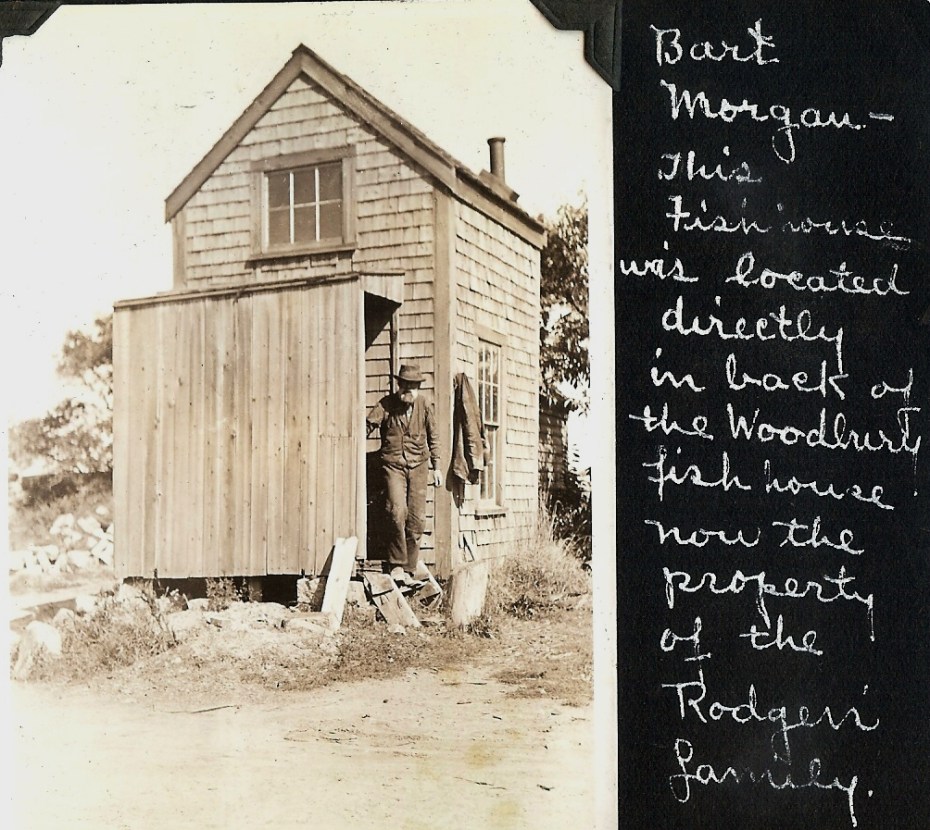 Bart
Morgan –
This
Fish house
was located
directly
in back of
the Woodbury
fish house
now the
property
of the
Rodgers'
family.